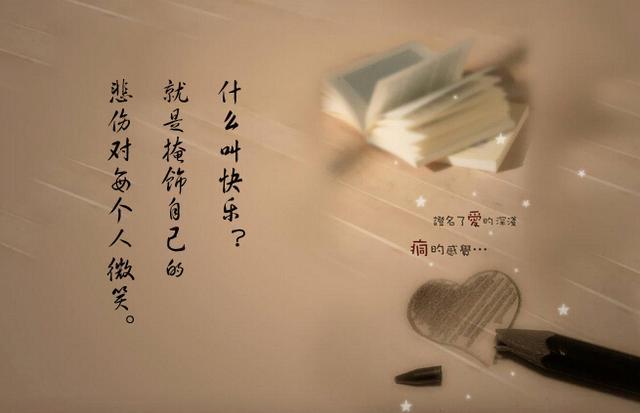 什么叫快乐？
就是掩饰自己的
悲伤对每个人微笑。
證名了愛的深淺
痌的感覺…